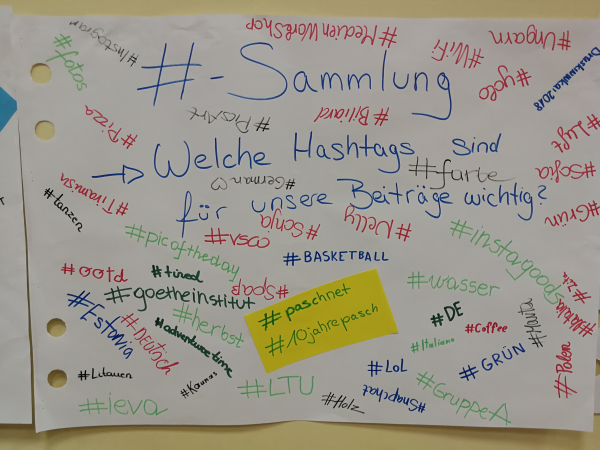 #-Sammlung
→ Welche Hashtags sind
für unsere Beiträge wichtig?
#Instagram
#fotos
#MedienWorkShop
#WiFi
#Ungarn
#yolo
#Pizza
#PicsArt
#Billiard
#Luft
#farbe
#Sofia
#German♡
#Tiramisu
#tanzen
#Sonja
#Nelly
#Grün
#picoftheday
#instagoods
#BASKETBALL
#ootd
#tired
#Spaß
#wasser
#goetheinstitut
#paschnet
#10jahrepasch
#Estonia
#DEUTSCH
#herbst
#adventuretime
#DE
#Coffee
#Italiano
#GRÜN
#Polen
#Litauen
#Kaunas
#LTU
#LOL
#Snapchat
#GruppeA
#Holz
#ieva